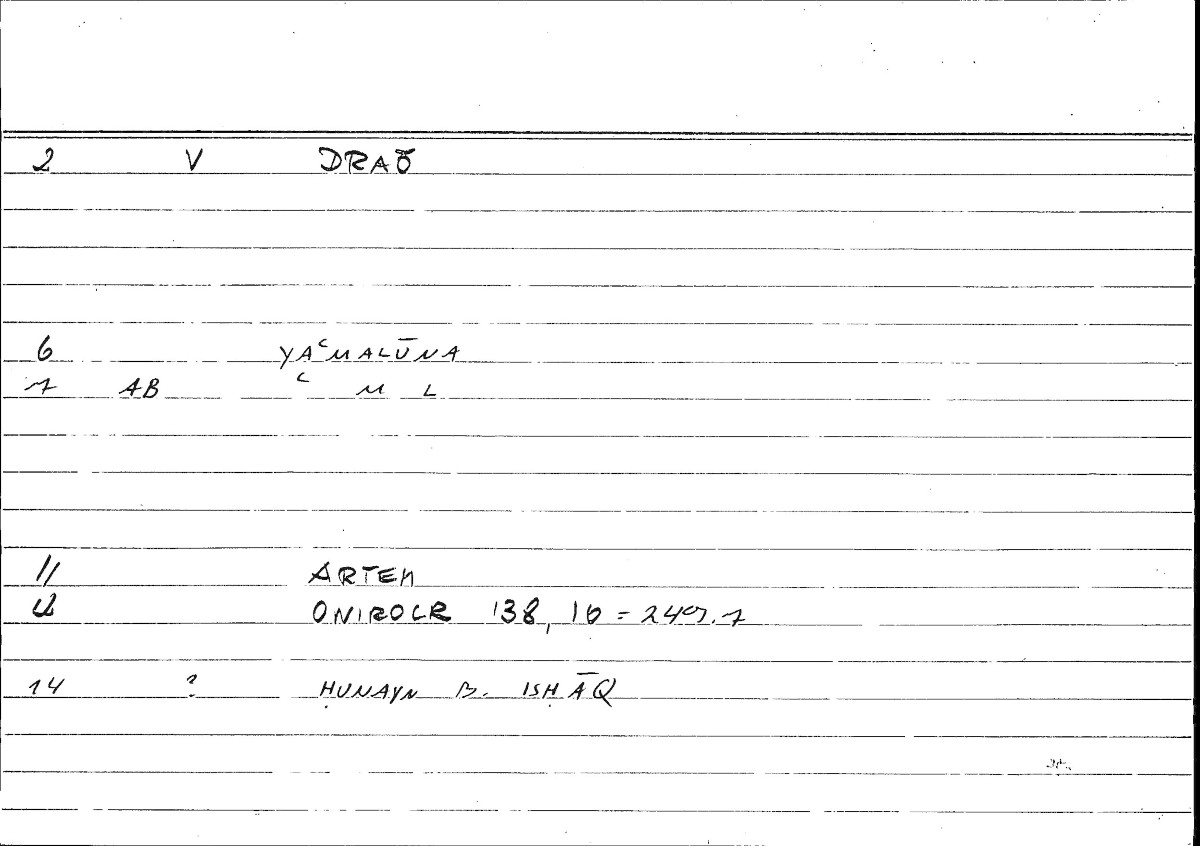 2 V DRAŌ
6 YAʿMALŪNA
7 AB ʿ M L
11 ARTEM
12 ONIROCR 138, 16 = 249.7
14 ? ḤUNAYN B. ISḤĀQ